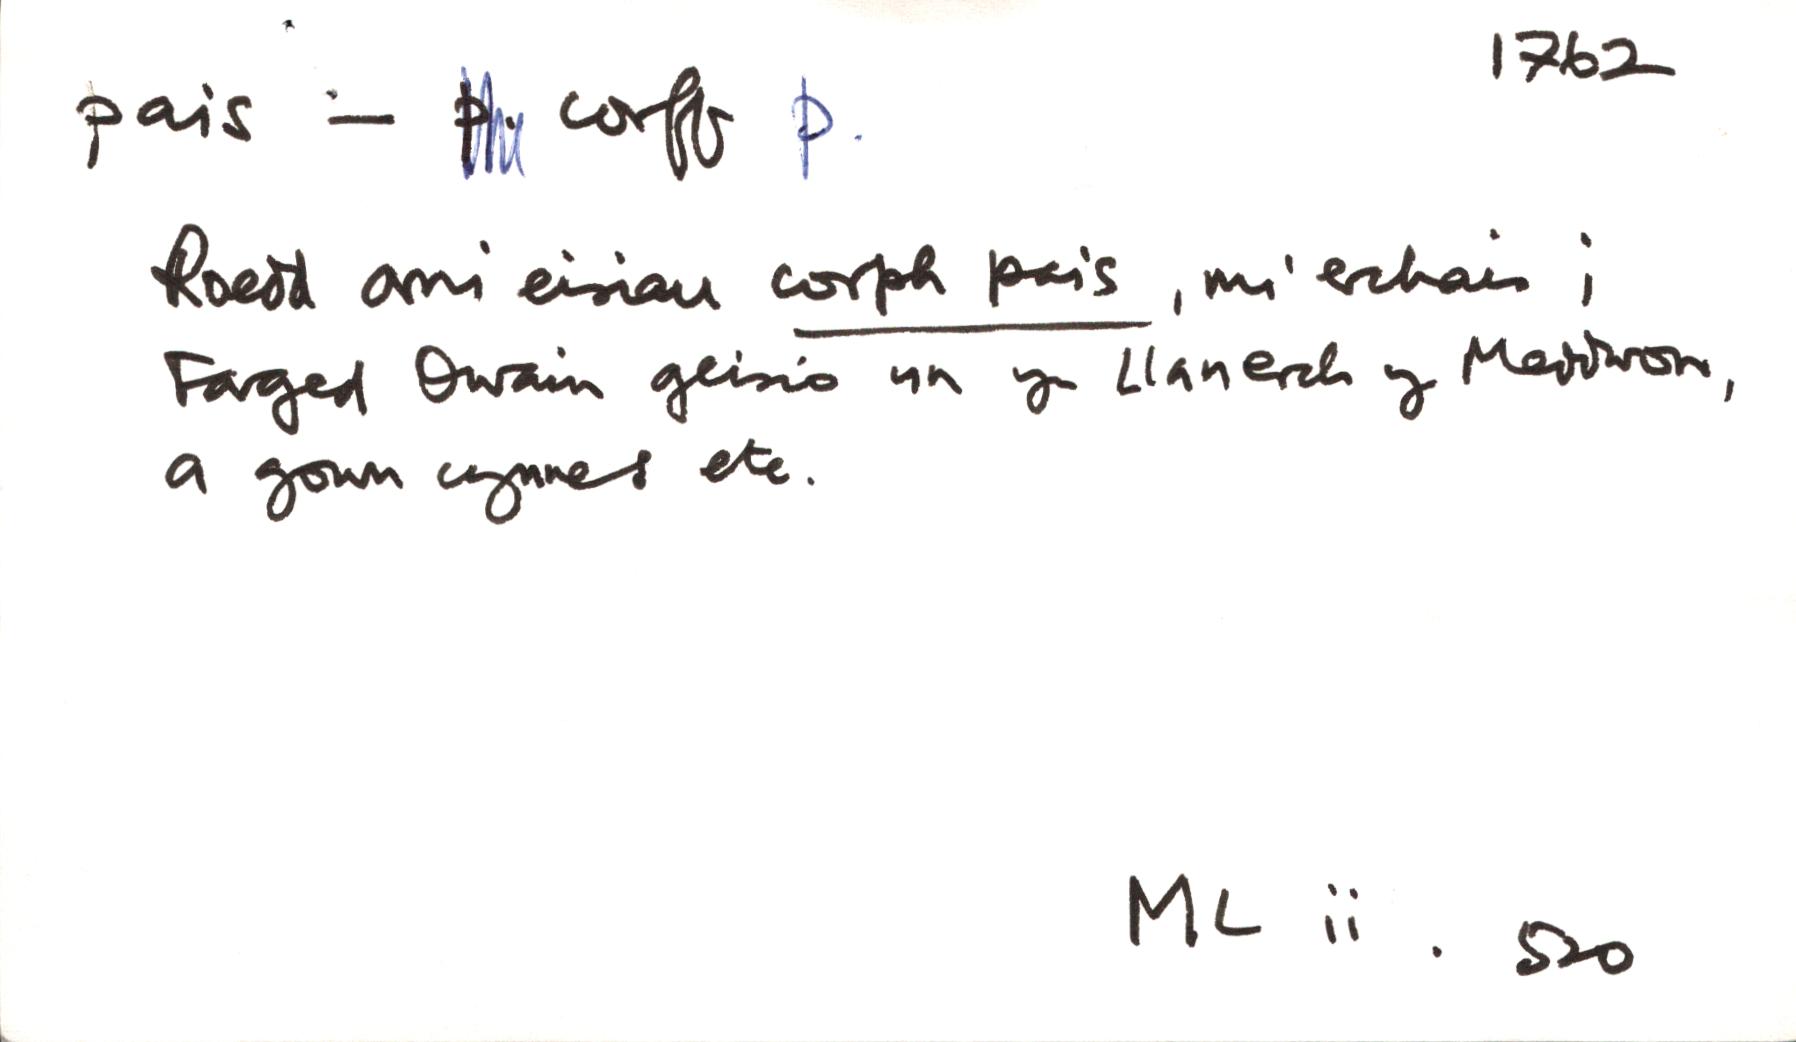 1762
pais :- corff p.
Roedd arni eisiau corph pais, mi erchais i
Farged Owain geisio un yn Llanerch y Meddwon,
a gown cynnes etc.
ML ii. 520